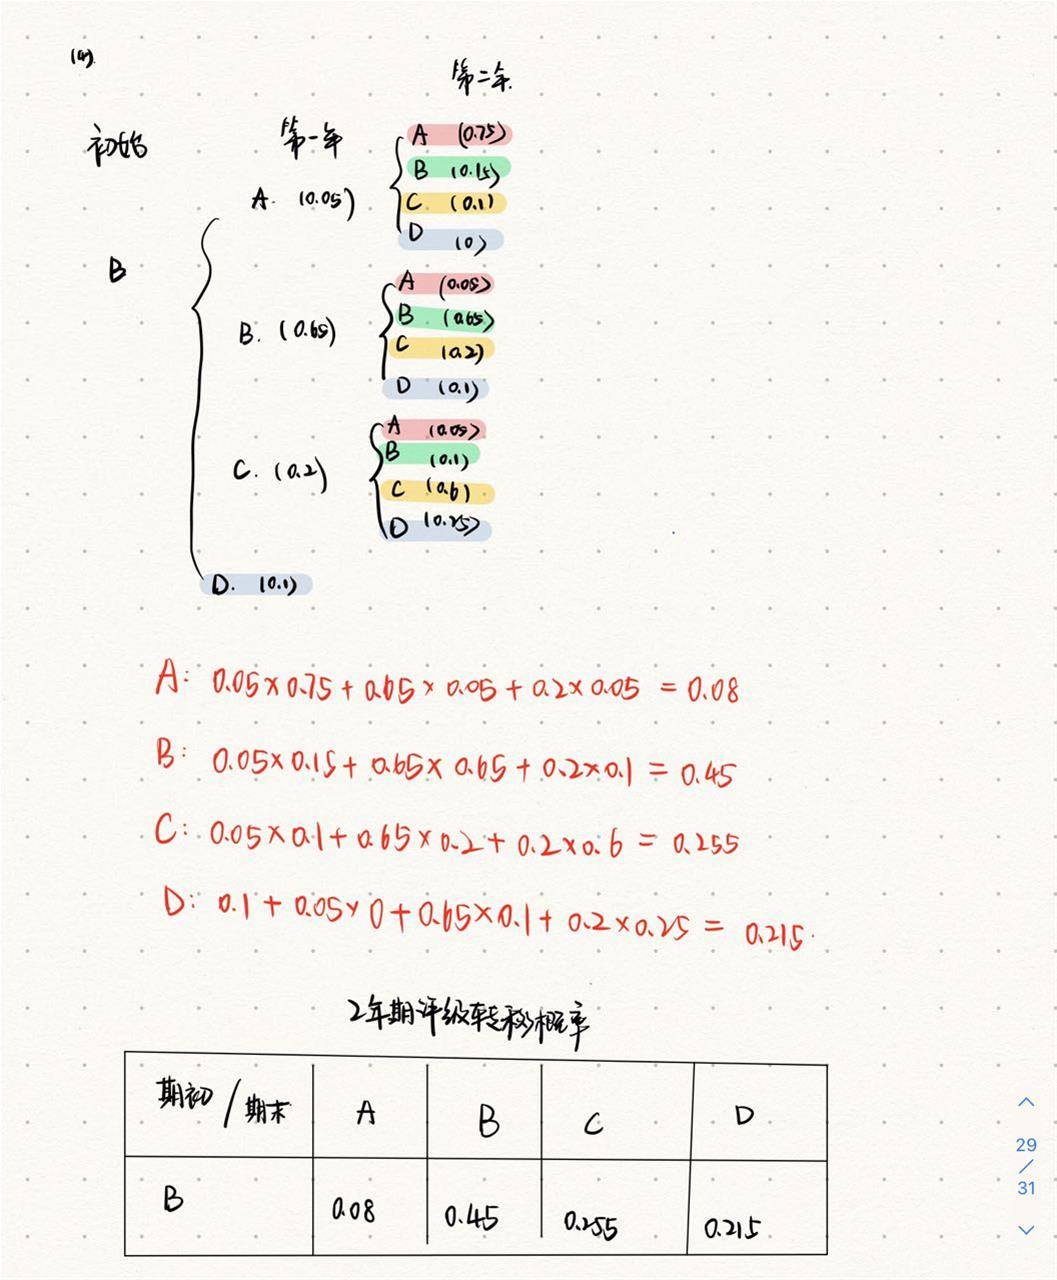 (a)
第二年
初始
第一年
A (0.75)
B (0.15)
A. (0.05)
C (0.1)
D (0)
B
A (0.05)
B (0.65)
B. (0.65)
C (0.2)
D (0.1)
A (0.05)
B (0.1)
C. (0.2)
C (0.6)
D (0.25)
D. (0.1)
A: 0.05×0.75+0.65×0.05+0.2×0.05=0.08
B: 0.05×0.15+0.65×0.65+0.2×0.1=0.45
C: 0.05×0.1+0.65×0.2+0.2×0.6=0.255
D: 0.1+0.05×0+0.65×0.1+0.2×0.25=0.215.
2年期评级转移概率
期初/期末 A B C D
B 0.08 0.45 0.255 0.215
29
/
31